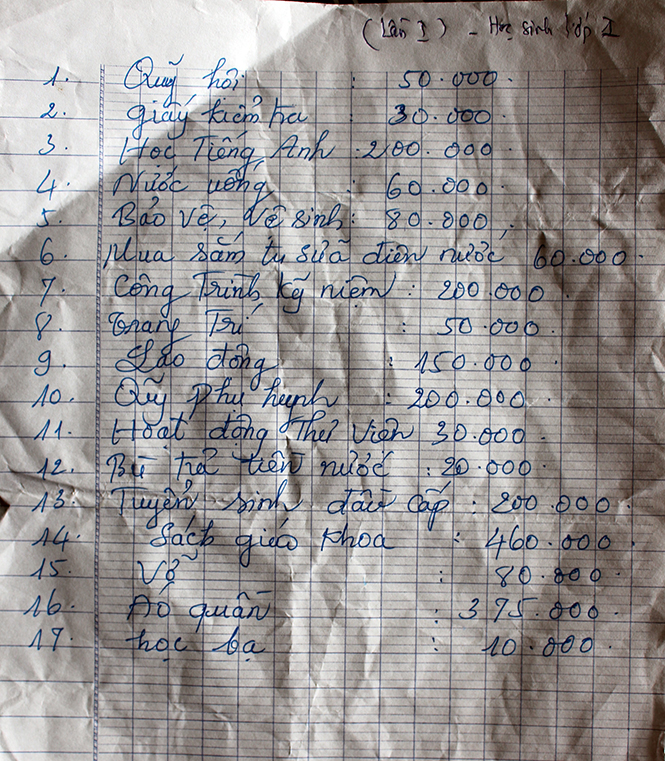 (Lần I) - Học sinh lớp I
1. Quỹ hội : 50.000.
2. giấy kiểm tra : 30.000.
3. Học Tiếng Anh 200.000.
4. Nước uống : 60.000
5. Bảo vệ, vệ sinh: 80.000,
6. Mua sắm tu sữa điện nước 60.000.
7. Công Trình kỹ niệm : 200.000
8. Trang Trí : 50.000
9. Lao động : 150.000
10. Quỹ phụ huynh : 200.000.
11. Hoạt động Thư viện 30.000.
12. Bù trả tiền nước : 20.000.
13. Tuyển sinh đầu cấp : 200.000.
14. Sách giáo khoa : 460.000.
15. Vỡ : 80.000
16. Áo quần : 375.000.
17. học bạ : 10.000.